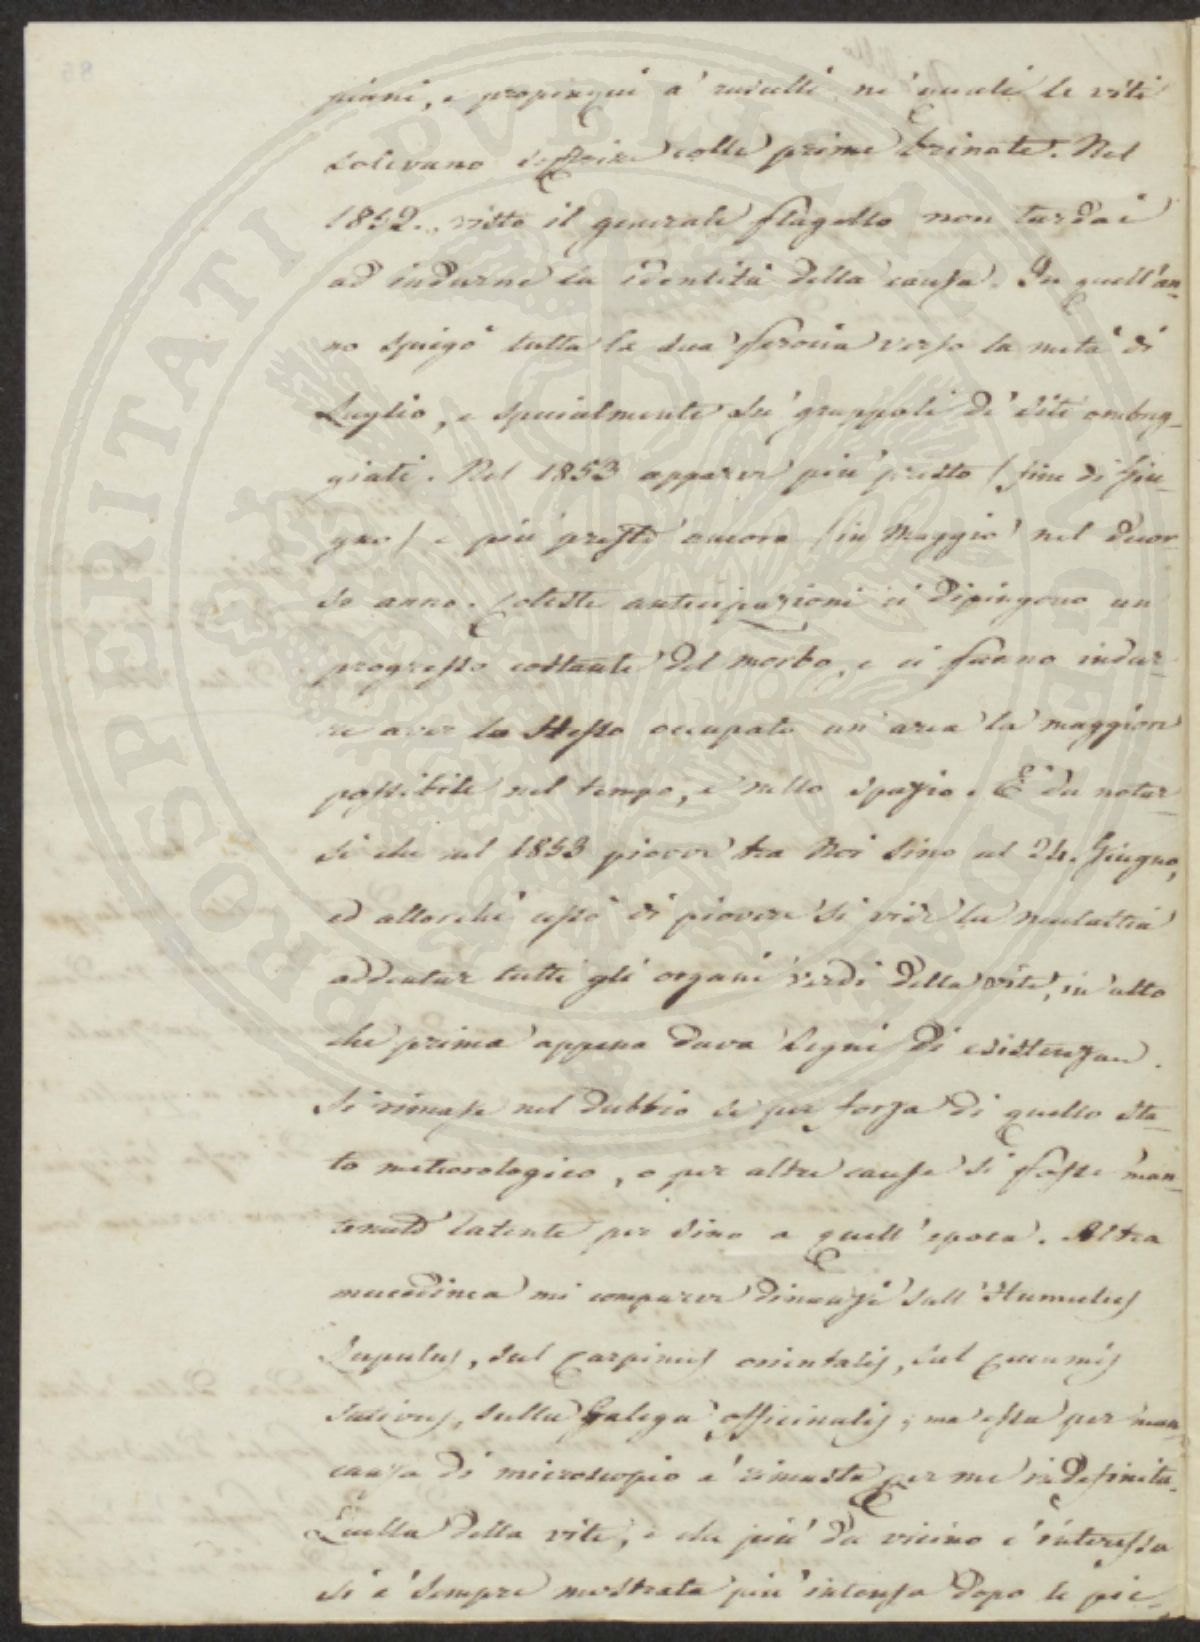 piani, e propinqui a' ruscelli ne' quali le viti
solevano sfiorire colle prime brinate. Nel
1852., visto il generale flagello non tardai
ad indurne la identità della causa. In quell'an-
no spiegò tutta la sua ferocia verso la metà di
Luglio, e specialmente su' grappoli di viti ombreg-
giati. Nel 1853 apparve più presto (fine di Giu-
gno) e più presto ancora (in Maggio) nel decor-
so anno. Coteste anticipazioni ci dipingono un
progresso costante del morbo, e ci fanno indur-
re aver lo stesso occupato un'area la maggiore
possibile nel tempo, e nello spazio. È da notar-
si che nel 1853 piovve tra Noi sino al 24. Giugno,
ed allorchè cessò di piovere si vide la malattia
addentar tutti gli organi verdi della vite, in atto
che prima appena dava segni di esistenza.
Si rimase nel dubbio se per forza di quello sta-
to meteorologico, o per altre cause si fosse man-
tenuto latente per sino a quell'epoca. Altra
mucedinea mi comparve dinanzi sull'Humulus
Lupulus, sul Carpinus orientalis, sul Cucumis
sativus, sulla Galega officinalis; ma essa per man-
canza di microscopio è rimasta per me indefinita.
Quella della vite, e che più da vicino c'interessa
si è sempre mostrata più intensa dopo le pie-
PROSPERITATI PVBLICAE AVGENDAE
86